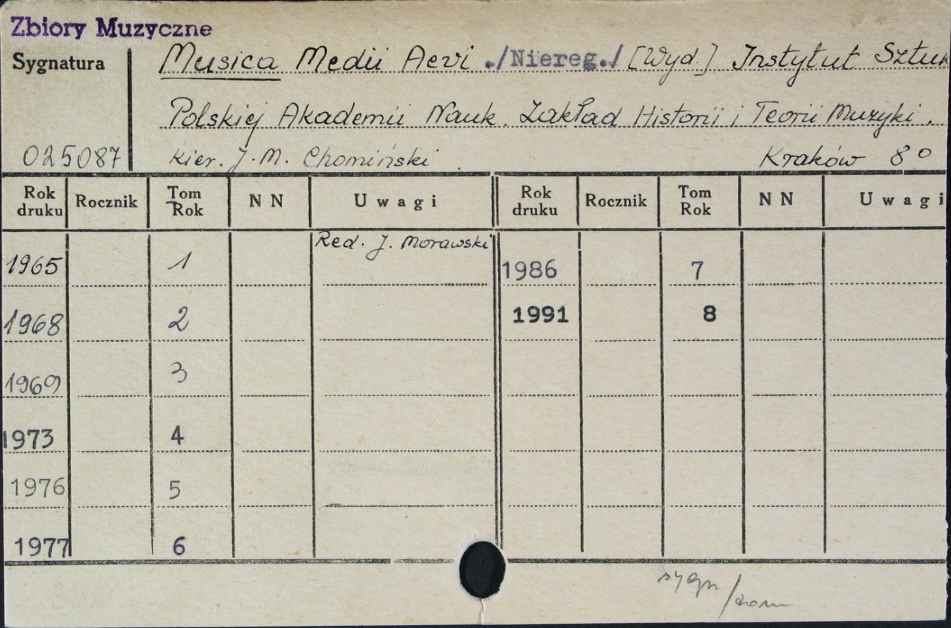 Zbiory Muzyczne
Sygnatura Musica Medii Aevi ./Niereg./ [Wyd] Instytut Sztuk
Polskiej Akademii Nauk. Zakład Historii i Teorii Muzyki.
025087 Kier. J. M. Chomiński. Kraków 8°
Rok druku Rocznik Tom Rok NN Uwagi Rok druku Rocznik Tom Rok NN Uwagi
Red. J. Morawski
1965 1 1986 7
1968 2 1991 8
1969 3
1973 4
1976 5
1977 6
sygn